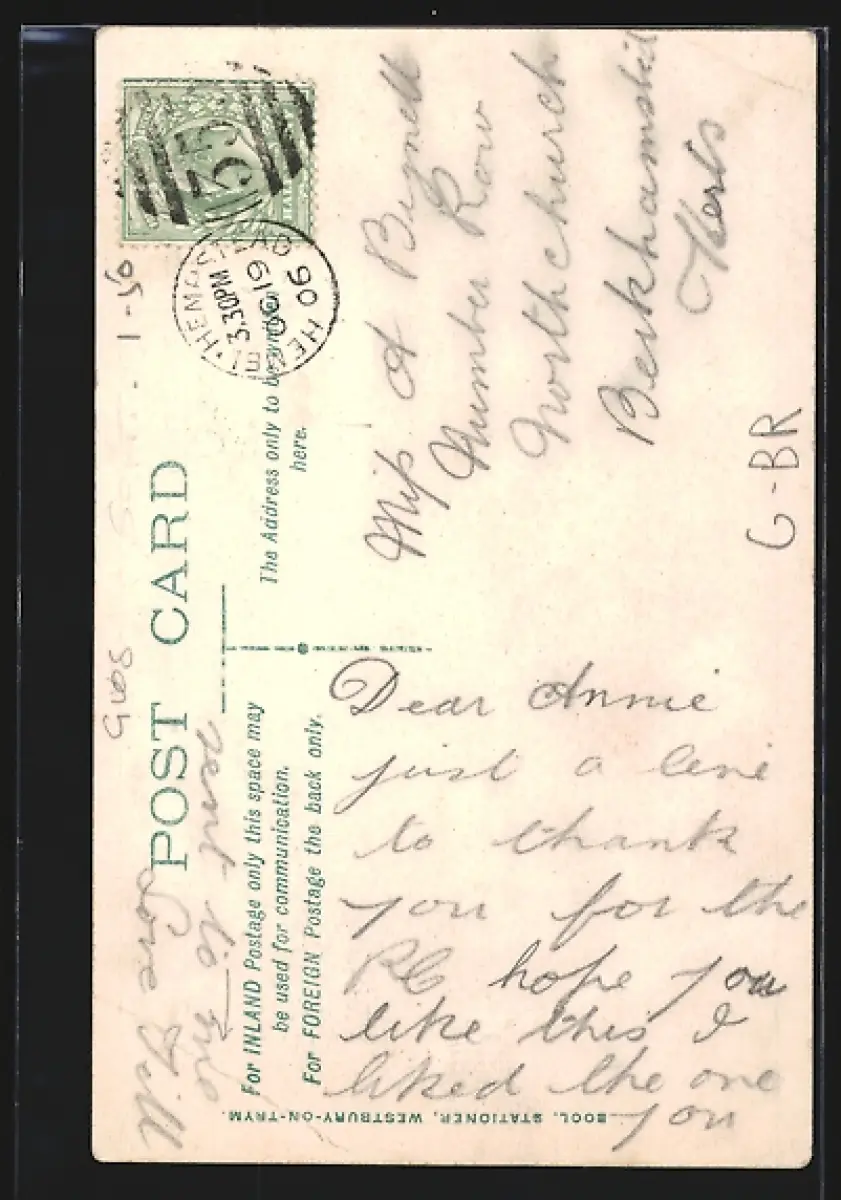 POST CARD
For INLAND Postage only this space may
be used for communication.
For FOREIGN Postage the back only.
The Address only to be
here.
HEMEL HEMPSTEAD
3.30PM
OC 19
06
Miss A
Row
Northchurch
Berkhamsted
Herts
Dear Annie
just a line
to thank
you for the
PC hope you
like this I
liked the one
you
Love
1-50
G-BR
BOOL, STATIONER, WESTBURY-ON-TRYM.